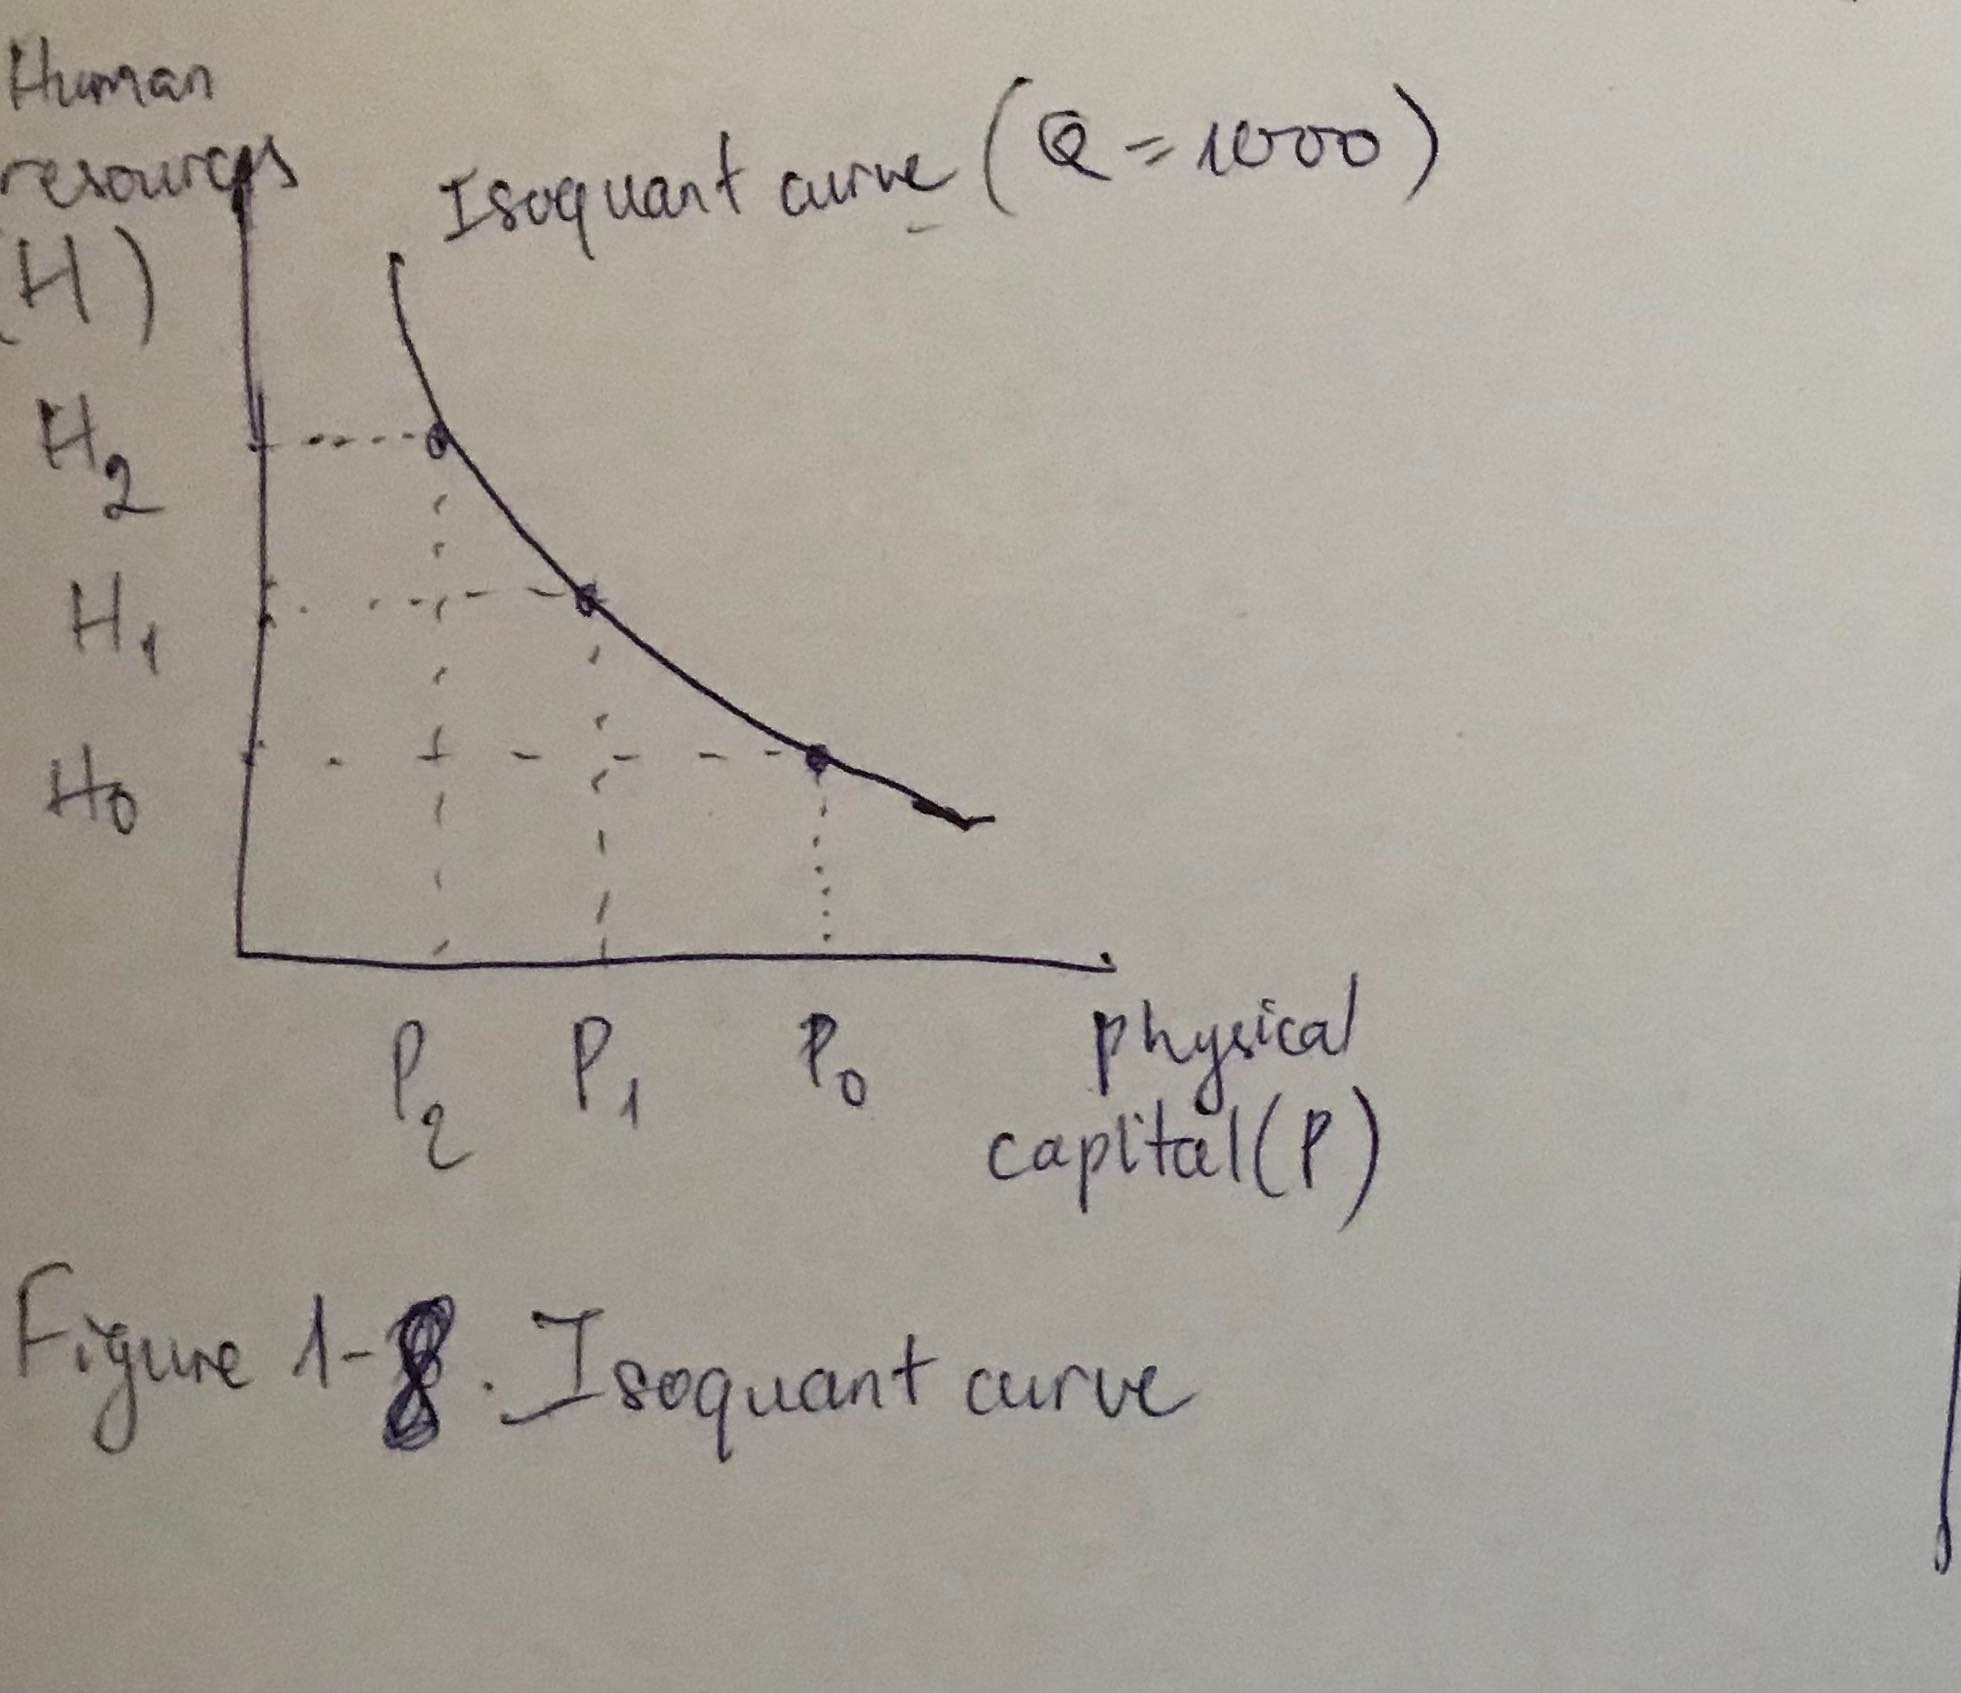 Human
resources
(H)
Isoquant curve (Q = 1000)
H2
H1
H0
P2
P1
P0
physical
capital (P)
Figure 1-8. Isoquant curve